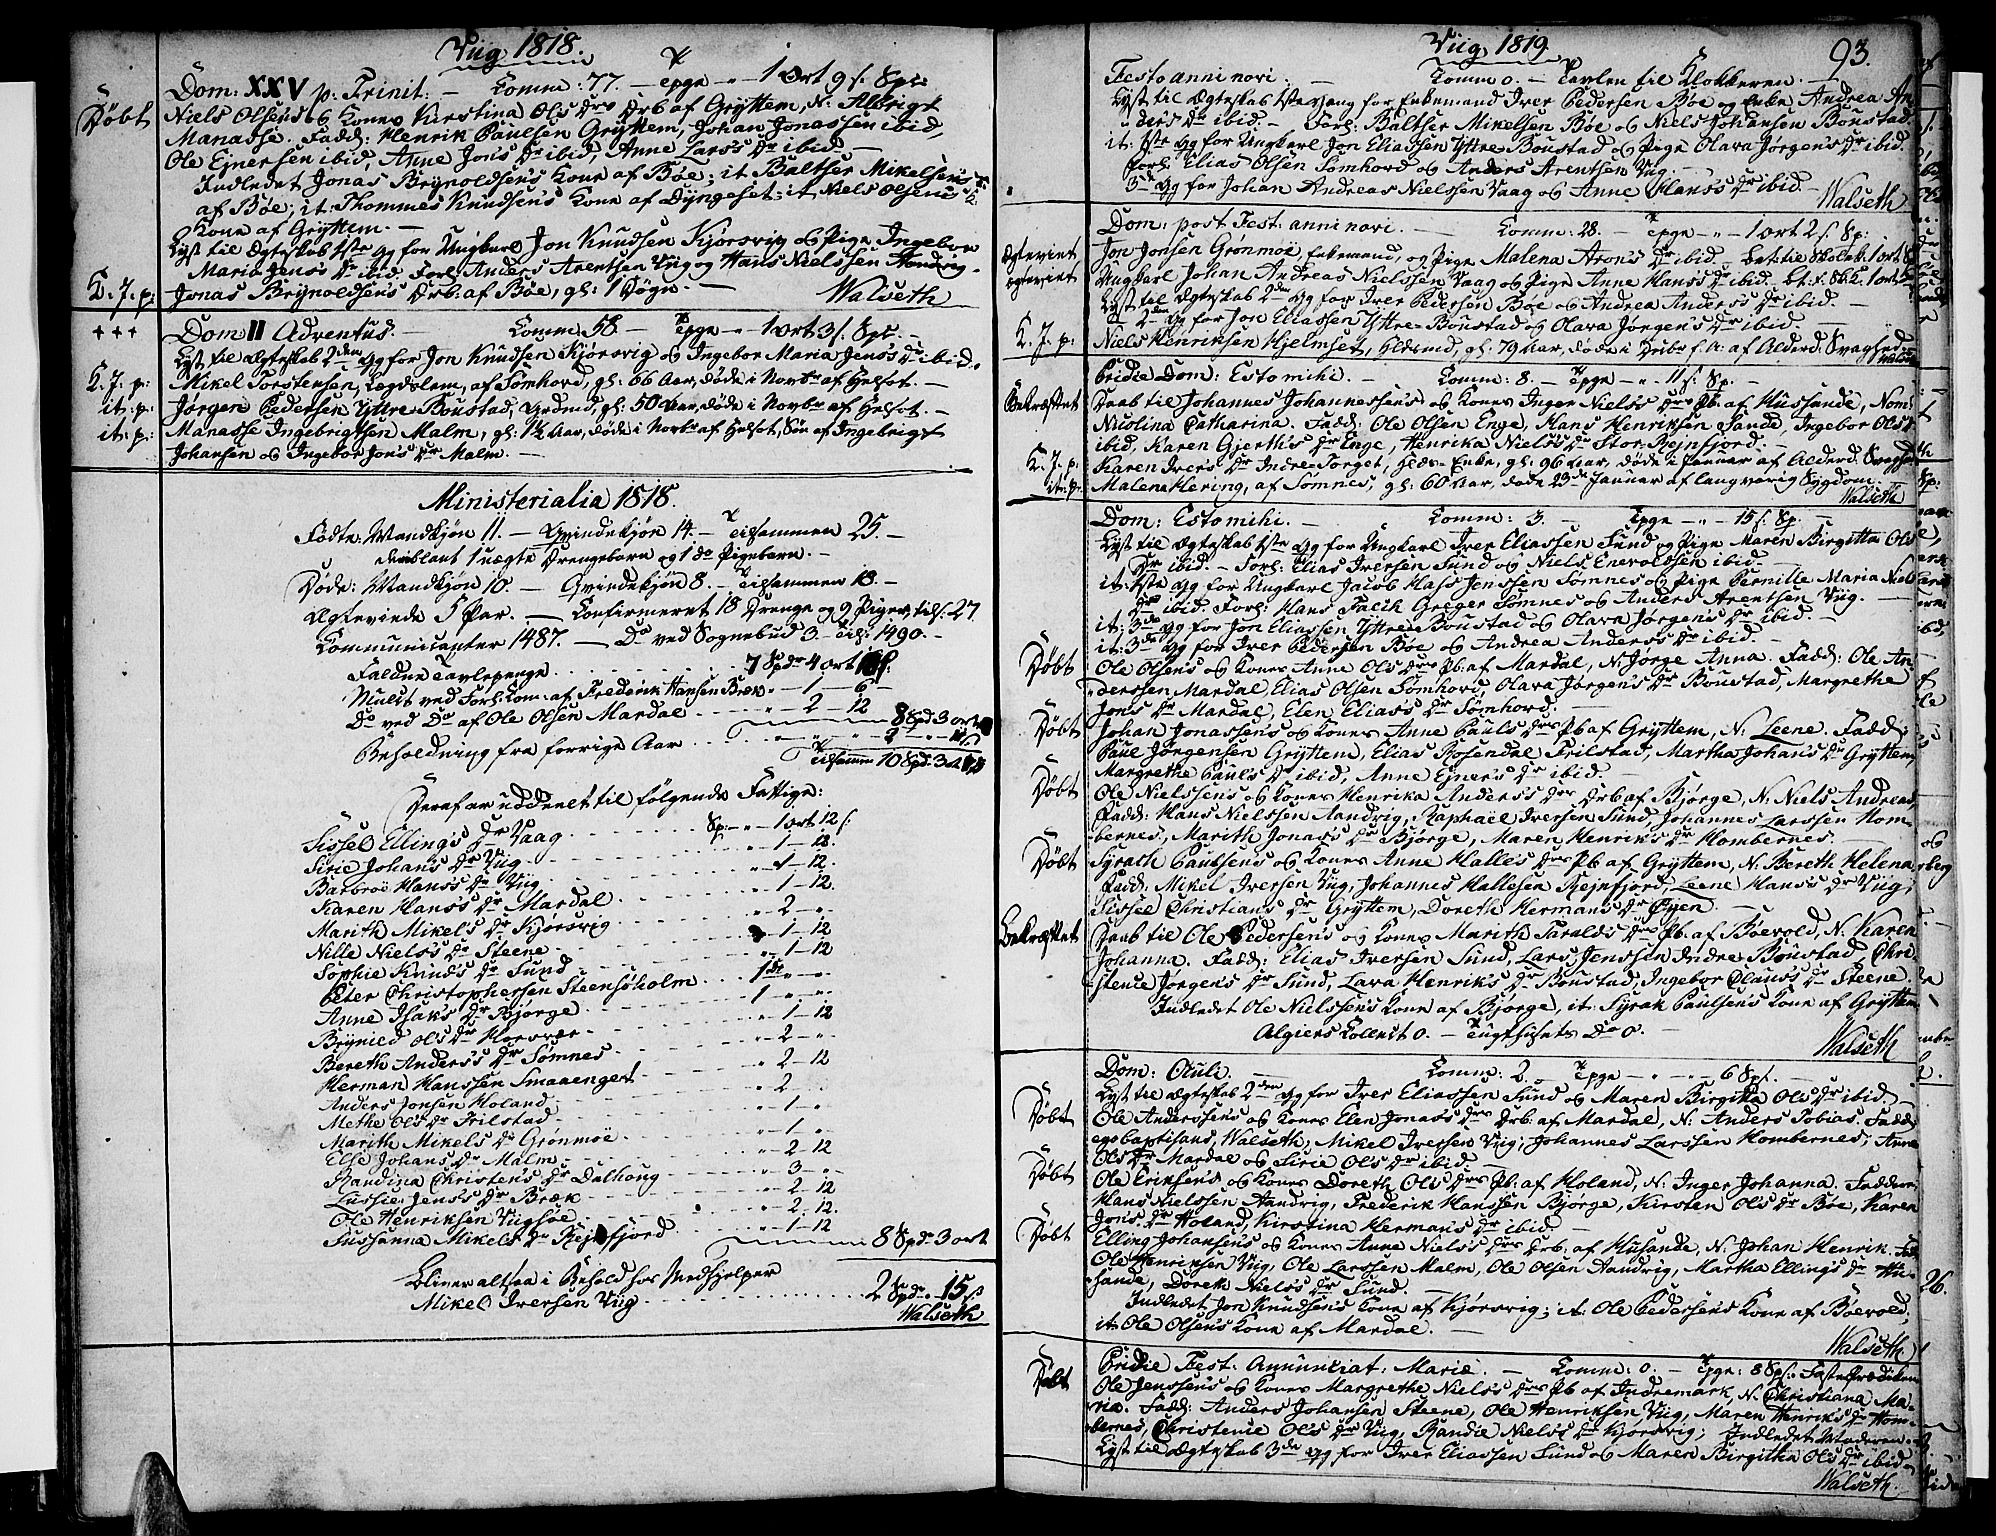 Viig 1818.
Dom: XXV p: Trinit: – Comm: 77. – Tpge – „ – 1 Ort 9 s. Spec
Døbt
Niels Olsens og Kones Kirstina Ols Drs Drb af Gryttem, N: Albrigt
Manasse. Fadd: Henrik Paulsen Gryttem, Johan Jonassen ibid,
Ole Ejnersen ibid, Anne Jons Dr ibid, Anne Lars's Dr ibid –
Indledet Jonas Brynoldsen's Kone af Bøe; it Baltser Mikelsens K.
af Bøe; it: Thommes Knudsen's Kone af Dyngeset; it Niels Olsens
Kone af Gryttem. –
Lyst til Ægteskab 1ste Gg for Ungkarl Jon Knudsen Kjørsvig og Pige Ingebor
Maria Jens's Dr ibid. Forl: Anders Arentsen Viig og Hans Nielssen Aandvig.
K. J. p: Jonas Brynoldsen's Drb: af Bøe, gl: 1 Døgn. – Walseth
+++ Dom: II Adventus. – Comm: 58. – Tpge – „ – 1 Ort 3 s. Spec. –
Lyst til Ægteskab 2den Gg for Jon Knudsen Kjørsvig og Ingebor Maria Jens's Dr ibid.
K. J. p: Mikel Torstensen, Legdslem, af Sømhord, gl: 66 Aar, døde i Novbr af Helsot. –
it: p: Jørgen Pedersen Yttre Boustad, Grdmd, gl: 50 Aar, døde i Novbr af Helsot. –
it: p: Manasse Ingebrigtsen Malm, gl: 1½ Aar, døde i Novbr af Helsot, Søn af Ingebrigt
Johansen og Ingebor Jons Dr Malm. –
Ministerialia 1818.
Fødte: Mandkjøn 11. – Qvindekjøn 14. – Tilsammen 25. –
deriblant 1 uægte Drengebarn og 1 do Pigebarn. –
Døde: Mandkjøn 10. – Qvindekjøn 8. – Tilsammen 18. –
Ægteviede 5 Par. – Confirmeret 18 Drenge og 9 Piger, tils: 27
Communicanter 1487. – Do ved Sognebud 3. Tils: 1490. –
Falden Tavlepenge . . . 7 Spdr 4 ort
Muldt ved Forl: Com: af Frederik Hansen Bræk „ – 1 – 6 –
Do ved Do af Ole Olsen Mardal . . . „ – 2 – 12
8 Spd 3 ort
Beholdning fra forrige Aar . . .
Tilsamm 10 Spd: 3
Deraf er uddeelt til følgende Fattige:
Sissel Ellings Dr Vaag . . . Sp: – „ – 1 Ort 12 s:
Sirie Johans Dr Viig . . . „ – 1 – 12.
Barbroe Hans's Dr Viig . . . „ – 1 – 12.
Karen Hans's Dr Mardal . . . „ – 1 – 12.
Marith Mikels Dr Kjørsvig . . . „ – 2 – „
Nille Niels's Dr Steene . . . „ – 1 – 12
Sophie Knuds Dr Sund . . . „ – 1 – 12
Peter Christophersen Steensøholm . . . 1 „ – „
Anne Isaks Dr Bjørge . . . 1 „ – „
Brynild Ols Dr Horsvær . . . „ – 1 – 12
Bereth Anders's Dr Sømnes . . . „ – 2 – „
Herman Hanssen Smaaenget . . . „ – 2 – 12
Anders Jonsen Holand . . . „ – 2 –
Methe Ols Dr Trilstad . . . „ – 1 – „
Marith Mikels Dr Grønmøe . . . „ – 1 – „
Else Johans Dr Malm . . . „ – 2 – 12
Randina Christen's Dr Dalhoug . . . „ – 3 – „
Lussie Jens's Dr Bræk . . . „ – 2 – 12
Ole Henriksen Vigsøe . . . „ – 2. 12.
Sussanna Mikels Dr Rejnfjord . . . „ – 1 – 12 8 Spd 3 ort
Bliver altsaa i Behold hos Medhjelper
Mikel Iversen Viig . . . 2 Spdr „ 15 s
Walseth
Viig 1819
93.
Festo anni novi. – Comm: 0. – Tavlen til Klokkeren. –
Lyst til Ægteskab 1ste Gang for Enkemand Iver Pedersen Bøe og Enke Andrea An-
ders Dr ibid. – Forl: Baltser Mikelsen Bøe og Niels Johansen Boustad.
it: 1ste Gg for Ungkarl Jon Eliassen Yttre Boustad og Pige Olava Jørgen's Dr ibid.
Forl: Elias Olsen Sømhord og Anders Arentsen Viig. –
3de Gg for Johan Andreas Nielssen Vaag og Anne Hans's Dr ibid. – Walseth
Dom: post Fest: anni novi. – Comm: 28. – Tpge – „ – 1 Ort 2 s. Sp:
Ægteviet Jon Jonsen Grønmøe, Enkemand, og Pige Malena Arons Dr ibid. – bet: til Skolek: 1 ort
Ægteviet Ungkarl Johan Andreas Nielssen Vaag og Pige Anne Hans's Dr ibid. bt: t: Sk: K: 1 ort
Lyst til Ægteskab 2den Gg for Iver Pedersen Bøe og Andrea Anders's Dr ibid. –
2den Gg for Jon Eliassen Yttre Boustad og Olava Jørgen's Dr ibid. –
K. J. p: Niels Henriksen Hjelmset, Hdsmd, gl: 79 Aar, døde i Decbr f. A: af Alderd: Svaghed. Wals:
Pridie Dom: Estomihi. – Comm: 8. – Tpge – „ – 11 s. Sp. –
Bekræftet Daab til Johannes Johannessen's og Kones Inger Niels's Drs Pb: af Hussande, Nom:
Nicolina Catharina. Fadd: Ole Olsen Enge, Hans Henriksen Sande, Ingebor Ols Dr
ibid, Karen Gjerths Dr Enge, Henrika Niels's Dr Stor-Rejnfjord. –
K. J. p. Karen Ivers Dr Indre-Torget, Hdsm: Enke, gl: 96 Aar, døde i Januar af Alderd. Svaghed
it: p: Malena Hering, af Sømnes, gl: 60 Aar, døde 23de Januar af langvarig Sygdom. –
Walseth
Dom: Estomihi. – Comm: 3. – Tpge – „ – 15 s. Sp. –
Lyst til Ægteskab 1ste Gg for Ungkarl Iver Eliassen Sund og Pige Maren Birgitta Ols
Dr ibid. – Forl: Elias Iversen Sund og Niels Enevoldsen ibid. –
it: 1ste Gg for Ungkarl Jacob Hass Jenssen Sømnes og Pige Pernille Maria Niels
Drs ibid. Forl: Hans Falch Greger Sømnes og Anders Arentsen Viig. –
it: 3de Gg for Jon Eliassen Yttre Boustad og Olava Jørgen's Dr ibid. –
it: 3de Gg for Iver Pedersen Bøe og Andrea Anders's Dr ibid. –
Døbt Ole Olsens og Kones Anne Ols Drs Pb: af Mardal, N: Jørge Anna. Fadd: Ole An-
derssen Mardal, Elias Olsen Sømhord, Olava Jørgen's Dr Boustad, Margrethe
Jons Dr Mardal, Elen Elias's Dr Sømhord. –
Døbt Johan Jonassens og Kones Anne Pauls Drs Pb af Gryttem, N: Leene. Fadd:
Paul Jørgensen Gryttem, Elias Rosendal Trilstad, Martha Johans Dr Gryttem,
Margrethe Pauls Dr ibid, Anne Ejners Dr ibid. –
Døbt Ole Nielssens og Kones Henrika Anders's Drs Drb af Bjørge, N: Niels Andreas,
Fadd: Hans Nielssen Aandvig, Raphaël Iversen Sund, Johannes Larssen Hom-
bernes, Marith Jonas's Dr Bjørge, Maren Henriks Dr Hombernes. –
Døbt Syrach Paulsens og Kones Anne Halles Drs Pb af Gryttem, N: Bereth Helena.
Fadd: Mikel Iversen Viig, Johannes Hallesen Rejnfjord, Leene Hans's Dr Viig,
Sissel Christians Dr Gryttem, Doreth Hermans Dr Øyen. –
Bekræftet Daab til Ole Pedersen's og Kones Marith Taralds Drs Pb. af Bøevold, N: Karen
Johanna. Fadd: Elias Iversen Sund, Lars Jenssen Indre Boustad, Chri-
stence Jørgen's Dr Sund, Lava Henriks Dr Boustad, Ingebor Claus's Dr Steene. –
Indledet Ole Nielssens Kone af Bjørge, it: Syrak Paulsens Kone af Gryttem
Algiers Collect 0. – Tugthusets Do 0. –
Walseth
Dom: Oculi. – Comm: 2. – Tpge – „ – „ – 6 Sps. –
Lyst til Ægteskab 2den Gg for Iver Eliassen Sund og Maren Birgitta Ols Dr ibid. –
Døbt Ole Anderssens og Kones Elen Jonas's Drs Drb: af Mardal, N: Anders Tobias. Fadd:
ego baptisans, Walseth, Mikel Iversen Viig, Johannes Larssen Hombernes, Anne
Ols Dr Mardal og Sirie Ols Dr ibid. –
Døbt Ole Eriksens og Kones Doreth Ols Drs Pb: af Holand, N: Inger Johanna. Faddere:
Hans Nielssen Aandvig, Frederik Hanssen Bjørge, Kirsten Ols Dr Bøe, Karen
Jons Dr Holand, Kirstina Hermans Dr ibid. –
Døbt Elling Johansens og Kones Anne Niels's Drs Drb: af Husande, N: Johan Henrik. Fad
Ole Henriksen Viig, Ole Larssen Malm, Ole Olsen Aandvig, Martha Ellings Dr Hu-
sande, Doreth Niels's Dr Sund. –
Indledet Jon Knudsen's Kone af Kjørsvig; it: Ole Pedersen's Kone af Bøevold,
it: Ole Olsen's Kone af Mardal. –
Walseth
Pridie Fest: Annunciat: Mariæ. – Comm: 0. – Tpge: 8 Sps. Fasteprædiken
Døbt Ole Jenssens og Kones Margrethe Niels's Drs Pb af Indremark, N: Christiana Ma-
ria. Fadd: Anders Johansen Steene, Ole Henriksen Viig, Maren Henriks Dr Hom-
bernes, Christence Ols Dr Viig, Randie Niels's Dr Kjørsvig; Indledet Moderen. –
Lyst til Ægteskab 3de Gg for Iver Eliassen Sund og Maren Birgitta Ols Dr ibid –
Walseth.
26.